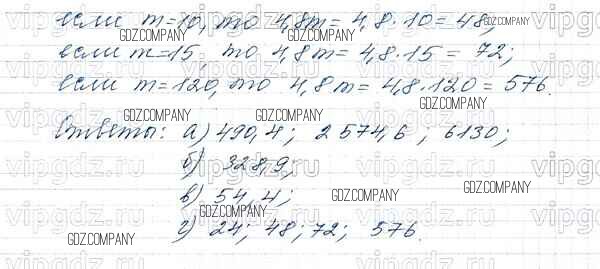 если m=10, то 4,8m = 4,8·10 = 48;
если m=15, то 4,8m = 4,8·15 = 72;
если m=120, то 4,8m = 4,8·120 = 576.
Ответы: а) 490,4; 2574,6; 6130;
б) 328,9;
в) 54,4;
г) 24; 48; 72; 576.